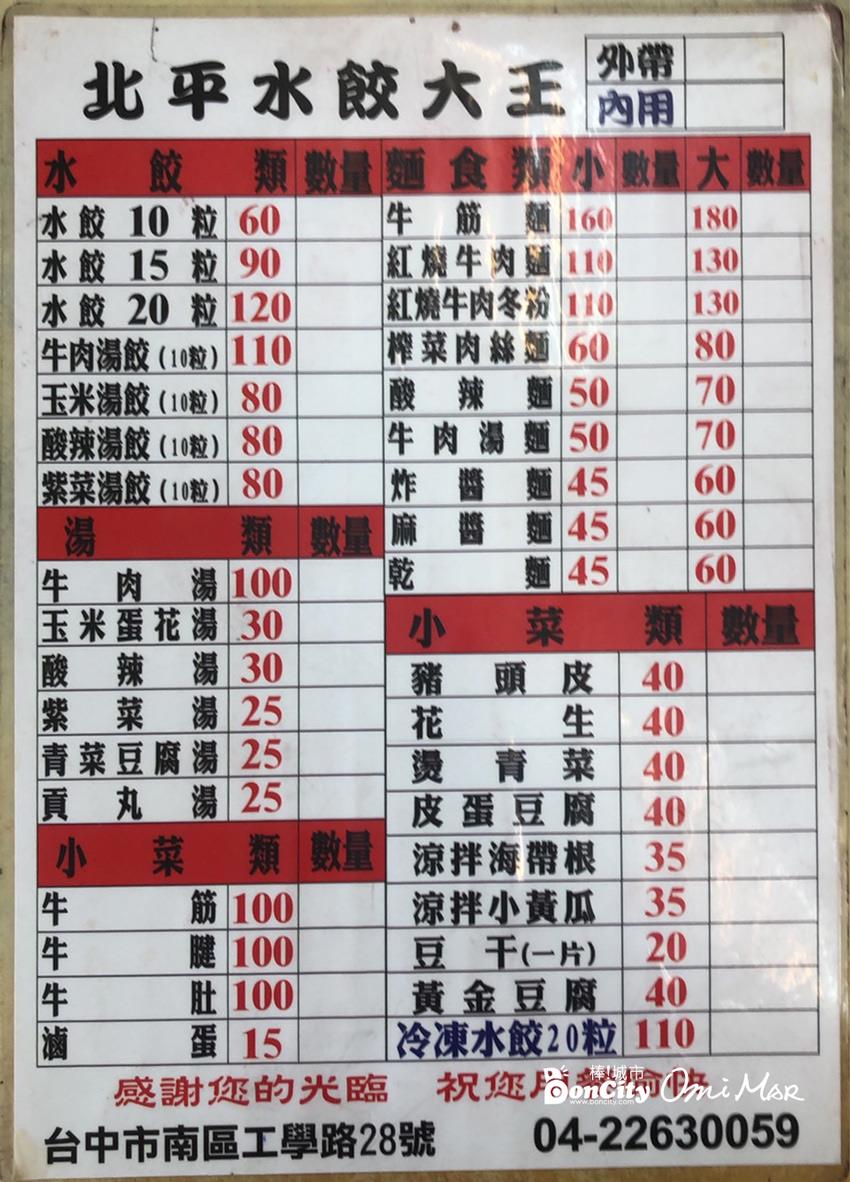 北平水餃大王
外帶
內用
水餃類 數量
水餃10粒 60
水餃15粒 90
水餃20粒 120
牛肉湯餃(10粒) 110
玉米湯餃(10粒) 80
酸辣湯餃(10粒) 80
紫菜湯餃(10粒) 80
湯類 數量
牛肉湯 100
玉米蛋花湯 30
酸辣湯 30
紫菜湯 25
青菜豆腐湯 25
貢丸湯 25
小菜類 數量
牛筋 100
牛腱 100
牛肚 100
滷蛋 15
麵食類 小 數量 大 數量
牛筋麵 160 180
紅燒牛肉麵 110 130
紅燒牛肉冬粉 110 130
榨菜肉絲麵 60 80
酸辣麵 50 70
牛肉湯麵 50 70
炸醬麵 45 60
麻醬麵 45 60
乾麵 45 60
小菜類 數量
豬頭皮 40
花生 40
燙青菜 40
皮蛋豆腐 40
涼拌海帶根 35
涼拌小黃瓜 35
豆干(一片) 20
黃金豆腐 40
冷凍水餃20粒 110
感謝您的光臨 祝您用餐愉快
棒!城市
BonCity Omi Mar
www.boncity.com
台中市南區工學路28號 04-22630059